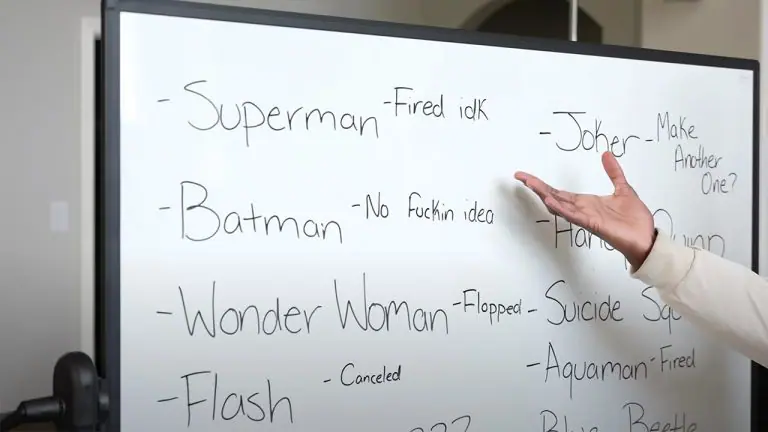 - Superman - Fired idk
- Batman - No Fuckin idea
- Wonder Woman - Flopped
- Flash - Canceled
???
- Joker - Make
Another
One?
- Quinn
- Suicide
- Aquaman - Fired
Blue Beetle